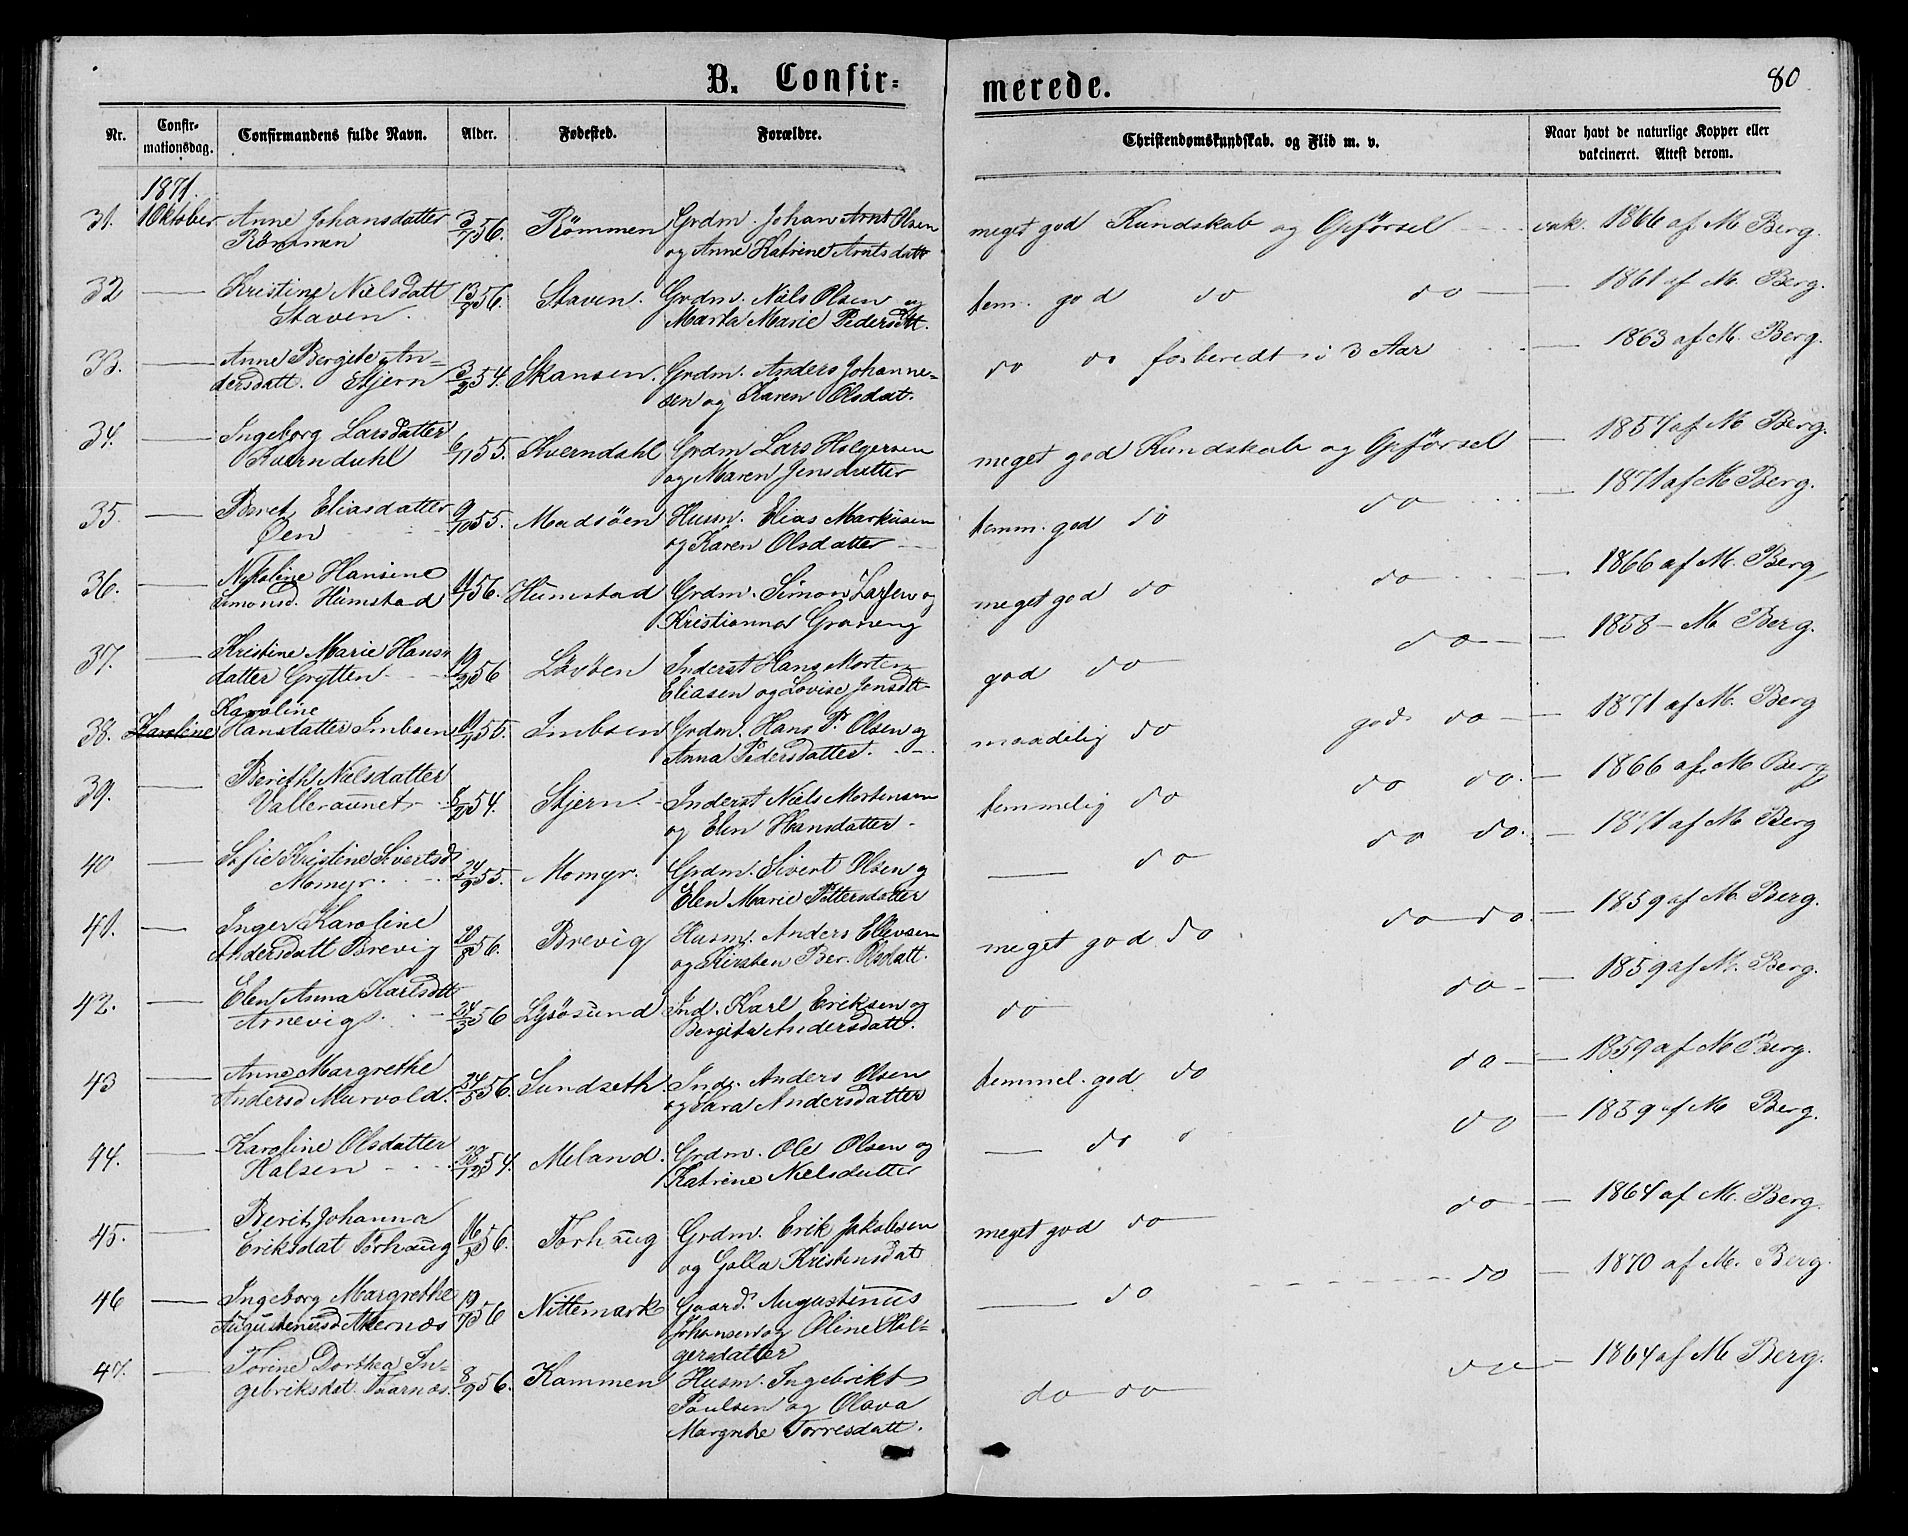 B. Confir=
merede.
80
Nr.
Confir-
mationsdag.
Confirmandens fulde Navn.
Alder.
Fødested.
Forældre.
Christendomskundskab. og Flid m. v.
Naar havt de naturlige Kopper eller
vakcineret. Attest derom.
1871.
31. 1 Oktober Anne Johansdatter 3/7 56. Römmen Grdm. Johan Arnt Olsen meget god Kundskab og Opførsel vak. 1866 af M Berg.
Römmen og Anne Katrine Arntsdatt
32 Kristine Nielsdatt 13/9 56. Staven. Grdm. Niels Olsen og tem. god do do 1861 af M. Berg.
Staven. Marta Marie Pedersdtt.
33. Anne Bergite An- 3/2 54. Skansen. Grdm. Anders Johanne- do do forberedt i 3 Aar 1863 af M. Berg.
dersdatt. Stjern sen og Karen Olsdat.
34. Ingeborg Larsdatter 6/11 55. Kverndahl Grdm Lars Holgersen meget god Kundskab og Opførsel 1857 af M Berg.
Kverndahl og Maren Jensdatter
35. Beret Eliasdatter 9/10 55. Madsöen Husm. Elias Markusen temm. god do do 1871 af M Berg.
Øen og Karen Olsdatter
36. Nikoline Hansine 11/7 56. Humstad Grdm. Simon Larsen og meget god do do 1866 af M. Berg
Simonsd. Humstad Kristianna Graneng
37. Kristine Marie Hans- 19/2 56 Lövöen Inderst Hans Morten god do do 1858 - M Berg.
datter Grytten Eliasen og Lovise Jensdtt
Karoline
38. Karoline Hansdatter Imbsen 11/4 55. Imbsen Grdm. Hans P. Olsen og maadelig do god do 1871 af M. Berg
Anna Pedersdatter.
39. Berith Nielsdatter 8/2 54. Stjern. Inderst Niels Mortensen temmelig do do do. 1866 af M Berg
Valleraunet og Elen Hansdatter
40 Sofie Kristine Sivertsd 24/9 55. Momyr. Grdm. Sivert Olsen og do do do. 1871 af M Berg
Momyr. Elen Marie Pettersdatter
41. Inger Karoline 20/8 56. Brevig Husm. Anders Ellevsen meget god do do do. 1859 af M Berg.
Andersdatt Brevig og Kirsten Ber. Olsdatt.
42. Elen Anna Karlsdtt 24/3 56 Lysösund Ind. Karl Eriksen og do do 1859 af M. Berg.
Arnevig Bergita Andersdatt.
43 Anne Margrethe 24/5 56. Sundseth Ind. Anders Olsen temmel. god do do 1859 af M Berg.
Andersd Murvold. og Sara Andersdatter
44. Karoline Olsdatter 28/12 54. Meland. Grdm. Ole Olsen og do do 1859 af M Berg.
Halsen Katrine Nielsdatter
45. Berit Johanna 16/3 56. Torhaug Grdm. Erik Jakobsen meget god do do 1864 af M. Berg.
Eriksdat Torhaug og Golla Kristensdat
46 Ingeborg Margrethe 19/7 56 Nittemark Gaard. Augustinus do do 1870 af M. Berg.
Augustinusd Akernæs Johansen og Oline Hol-
gersdatter
47. Torine Dorthea In- 8/9 56. Kammen Husm. Ingebrikt do do do 1864 af M Berg.
gebriksdat. Taarnes. Paulsen og Olava
Margrete Torresdatt.